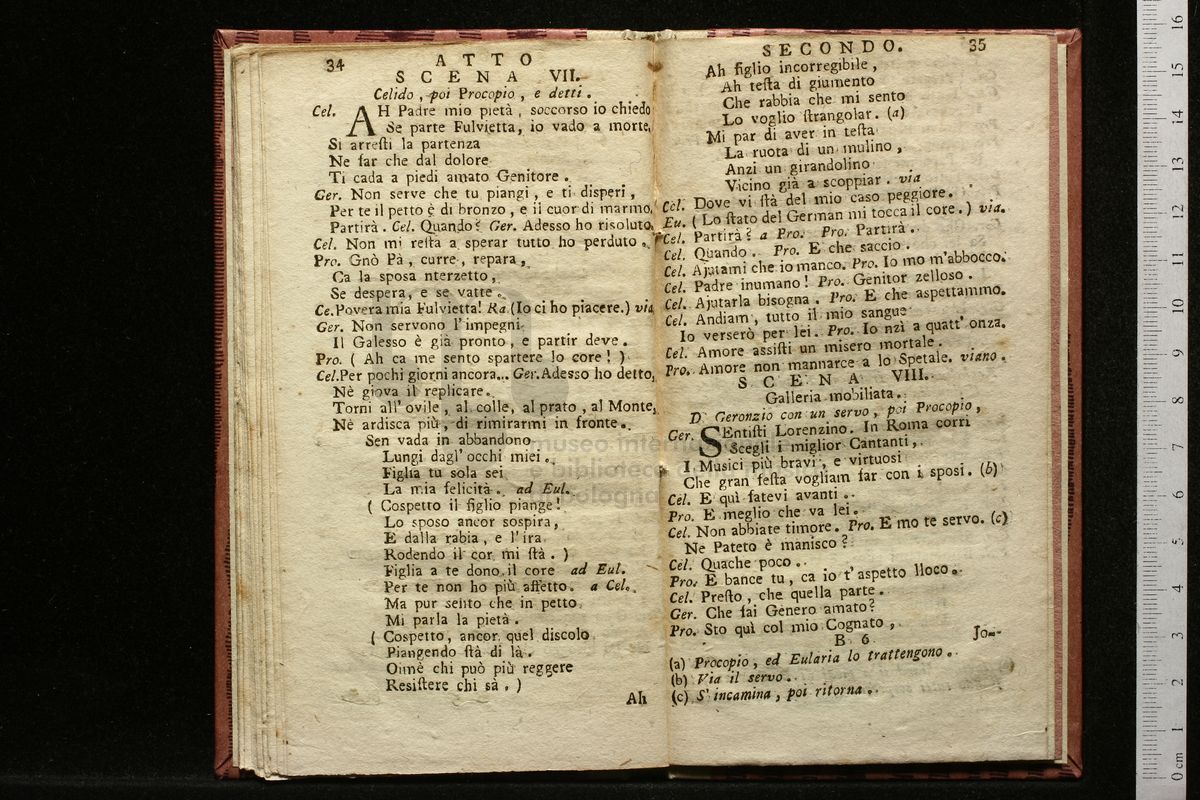 34
ATTO
SCENA VII.
Celido, poi Procopio, e detti.
Cel. AH Padre mio pietà, soccorso io chiedo
Se parte Fulvietta, io vado a morte,
Si arreſti la partenza
Ne far che dal dolore
Ti cada a piedi amato Genitore.
Ger. Non serve che tu piangi, e ti disperi,
Per te il petto è di bronzo, e il cuor di marmo,
Partirà. Cel. Quando? Ger. Adesso ho risoluto,
Cel. Non mi reſta a sperar tutto ho perduto.
Pro. Gnò Pà, curre, repara,
Ca la sposa nterzetto,
Se despera, e se vatte.
Ce. Povera mia Fulvietta! Ra. (Io ci ho piacere.) via
Ger. Non servono l'impegni
Il Galesso è già pronto, e partir deve.
Pro. ( Ah ca me sento spartere lo core! )
Cel. Per pochi giorni ancora... Ger. Adesso ho detto,
Nè giova il replicare.
Torni all'ovile, al colle, al prato, al Monte,
Nè ardisca più, di rimirarmi in fronte.
Sen vada in abbandono
Lungi dagl'occhi miei.
Figlia tu sola sei
La mia felicità. ad Eul.
( Cospetto il figlio piange!
Lo sposo ancor sospira,
E dalla rabia, e l'ira
Rodendo il cor mi ſtà. )
Figlia a te dono il core ad Eul.
Per te non ho più affetto. a Cel.
Ma pur sento che in petto
Mi parla la pietà.
( Cospetto, ancor quel discolo
Piangendo ſtà di là.
Oimè chi può più reggere
Resiſtere chi sà. )
Ah
SECONDO. 35
Ah figlio incorregibile,
Ah teſta di giumento
Che rabbia che mi sento
Lo voglio ſtrangolar. (a)
Mi par di aver in teſta
La ruota di un mulino,
Anzi un girandolino
Vicino già a scoppiar. via
Cel. Dove vi ſtà del mio caso peggiore.
Eu. ( Lo ſtato del German mi tocca il core. ) via.
Cel. Partirà? a Pro. Pro. Partirà.
Cel. Quando. Pro. E che saccio.
Cel. Ajutami che io manco. Pro. Io mo m'abbocco.
Cel. Padre inumano! Pro. Genitor zelloso.
Cel. Ajutarla bisogna. Pro. E che aspettammo.
Cel. Andiam, tutto il mio sangue
Io verserò per lei. Pro. Io nzì a quatt' onza.
Cel. Amore assiſti un misero mortale.
Pro. Amore non mannarce a lo Spetale. viano.
SCENA VIII.
Galleria mobiliata.
D Geronzio con un servo, poi Procopio,
Ger. SEntiſti Lorenzino. In Roma corri
Scegli i miglior Cantanti,
I Musici più bravi, e virtuosi
Che gran feſta vogliam far con i sposi. (b)
Cel. E quì fatevi avanti.
Pro. E meglio che va lei.
Cel. Non abbiate timore. Pro. E mo te servo. (c)
Ne Pateto è manisco?
Cel. Quache poco.
Pro. E bance tu, ca io t'aspetto lloco.
Cel. Preſto, che quella parte.
Ger. Che fai Genero amato?
Pro. Sto quì col mio Cognato,
B 6 Io--
(a) Procopio, ed Eularia lo trattengono.
(b) Via il servo.
(c) S'incamina, poi ritorna.